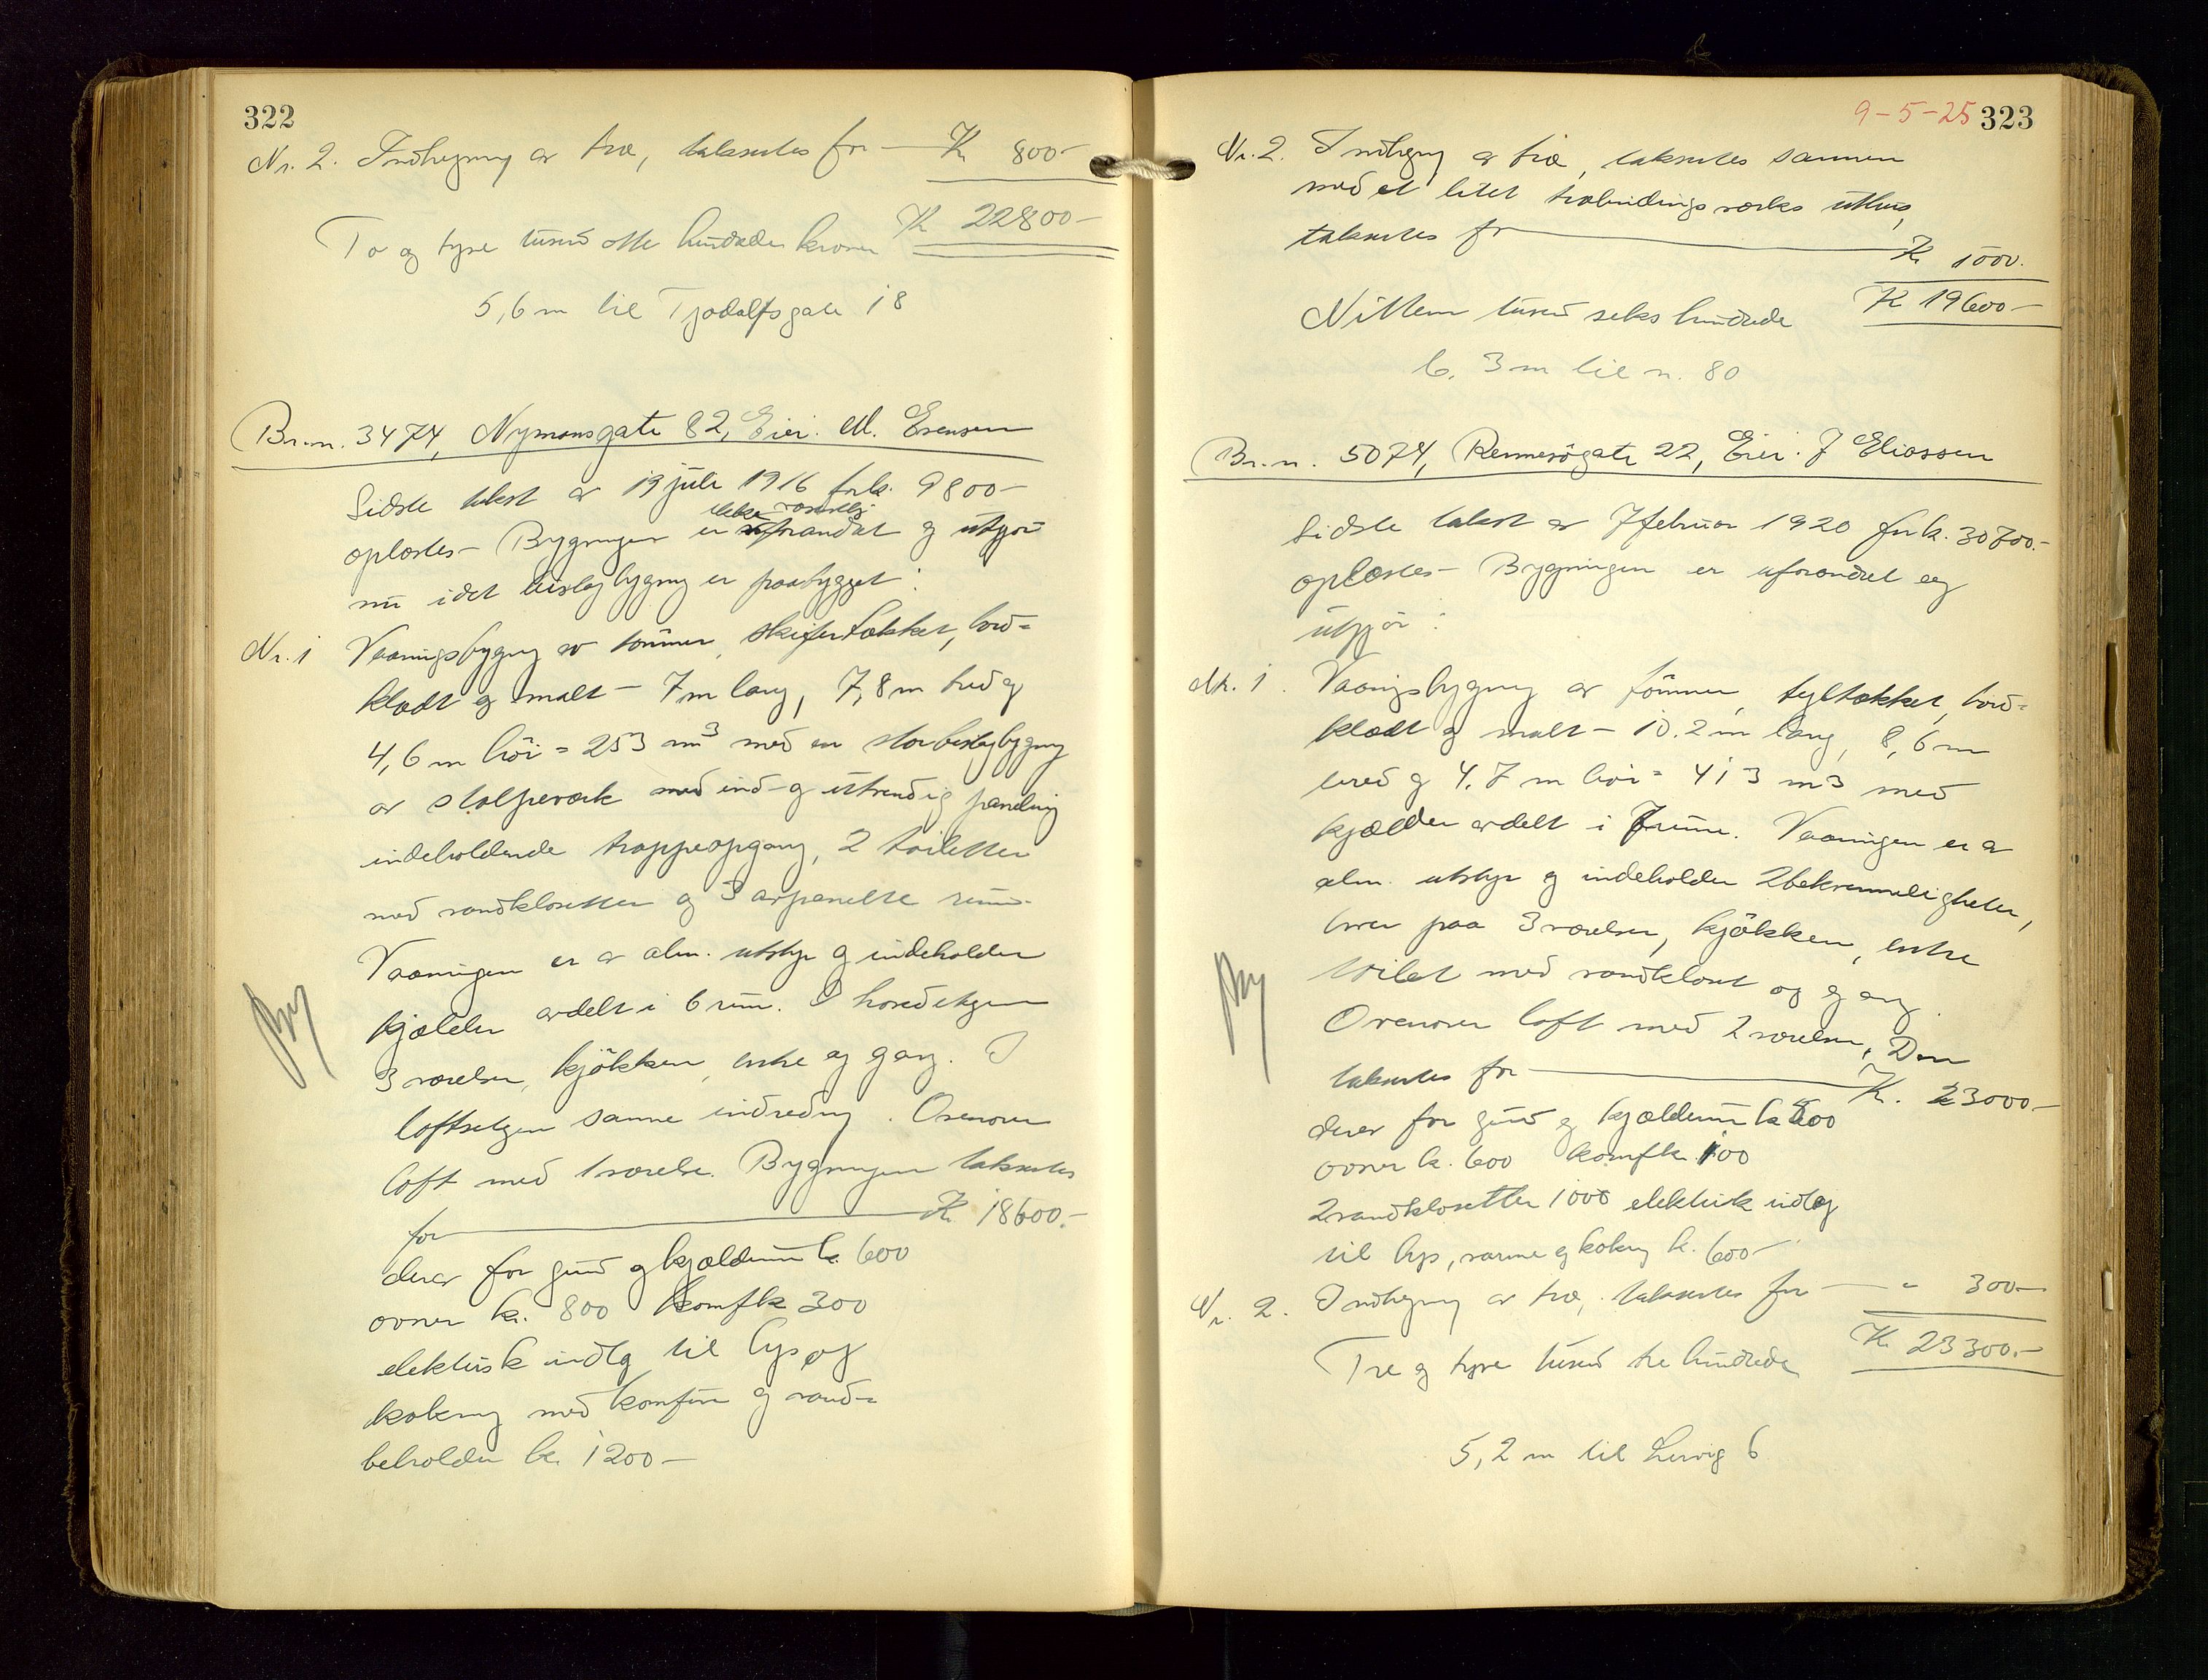 322
Nr. 2. Indhegning av træ, taksertes for — Kr 800-
Kr 22800-
To og tyve tusend otte hundrede kroner
5,6 m til Tjodolfsgate 18
Br.n. 3474, Nymansgate 82, Eier. M. Evensen
Sidste takst av 19 juli 1916 for k. 9800-
ikke væsentlig
oplæstes - Bygningen er forandret og utgjør
nu idet bislagbygning er paabygget :
Nr. 1 Vaaningsbygning av tømmer, skifertækket, bord=
klædt og malt - 7 m lang, 7,8 m bred og
4,6 m høi = 253 m3 med en stor bislagbygning
av stolpeverk med ind- og utvendig paneling
indeholdende trappeopgang, 2 toiletter
med vandklosetter og 3 avpanelte rum.
Vaaningen er av alm. utstyr og indeholder
kjælder avdelt i 6 rum. I hovedetagen
3 værelser, kjøkken, entre og gang. I
loftsetagen samme indredning. Ovenover
loft med 1 værelse. Bygningen taksertes
for — Kr. 18600.-
derav for grund og kjælderrum k. 600
ovner k. 800 komf k 300
elektrisk indlæg til lys og
kokning med komfur og vand=
beholder k. 1200-
9-5-25 323
Nr. 2. Indhegning av træ, taksertes sammen
med et litet træbindingsværks uthus,
taksertes for — Kr 1000.
Kr 19600-
Nitten tusend seks hundrede
6.3 m til n. 80
Br.n. 5074, Rennesøgate 22, Eier. J Eliassen
Sidste takst av 7 februar 1920 for k. 30700.-
oplæstes - Bygningen er uforandret og
utgjør :
Nr. 1. Vaaningsbygning av tømmer, tegltækket, bord=
klædt og malt - 10.2 m lang, 8,6 m
bred og 4.7 m høi = 413 m3 med
kjælder avdelt i 7 rum. Vaaningen er av
alm. utstyr og indeholder 2 bekvemmeligheter,
hver paa 3 værelser, kjøkken, entre
toilet med vandkloset og gang.
Ovenover loft med 2 værelser. Den
taksertes for — Kr. 23000-
derav for grund og kjælderrum k 800
ovner k. 600 komf k. 100
2 vandklosetter 1000 elektrisk indlæg
til lys, varme og kokning k. 600-
Nr. 2. Indhegning av træ, taksertes for — " 300-
Kr. 23300.-
Tre og tyve tusend tre hundrede
5,2 m til Lervig 6